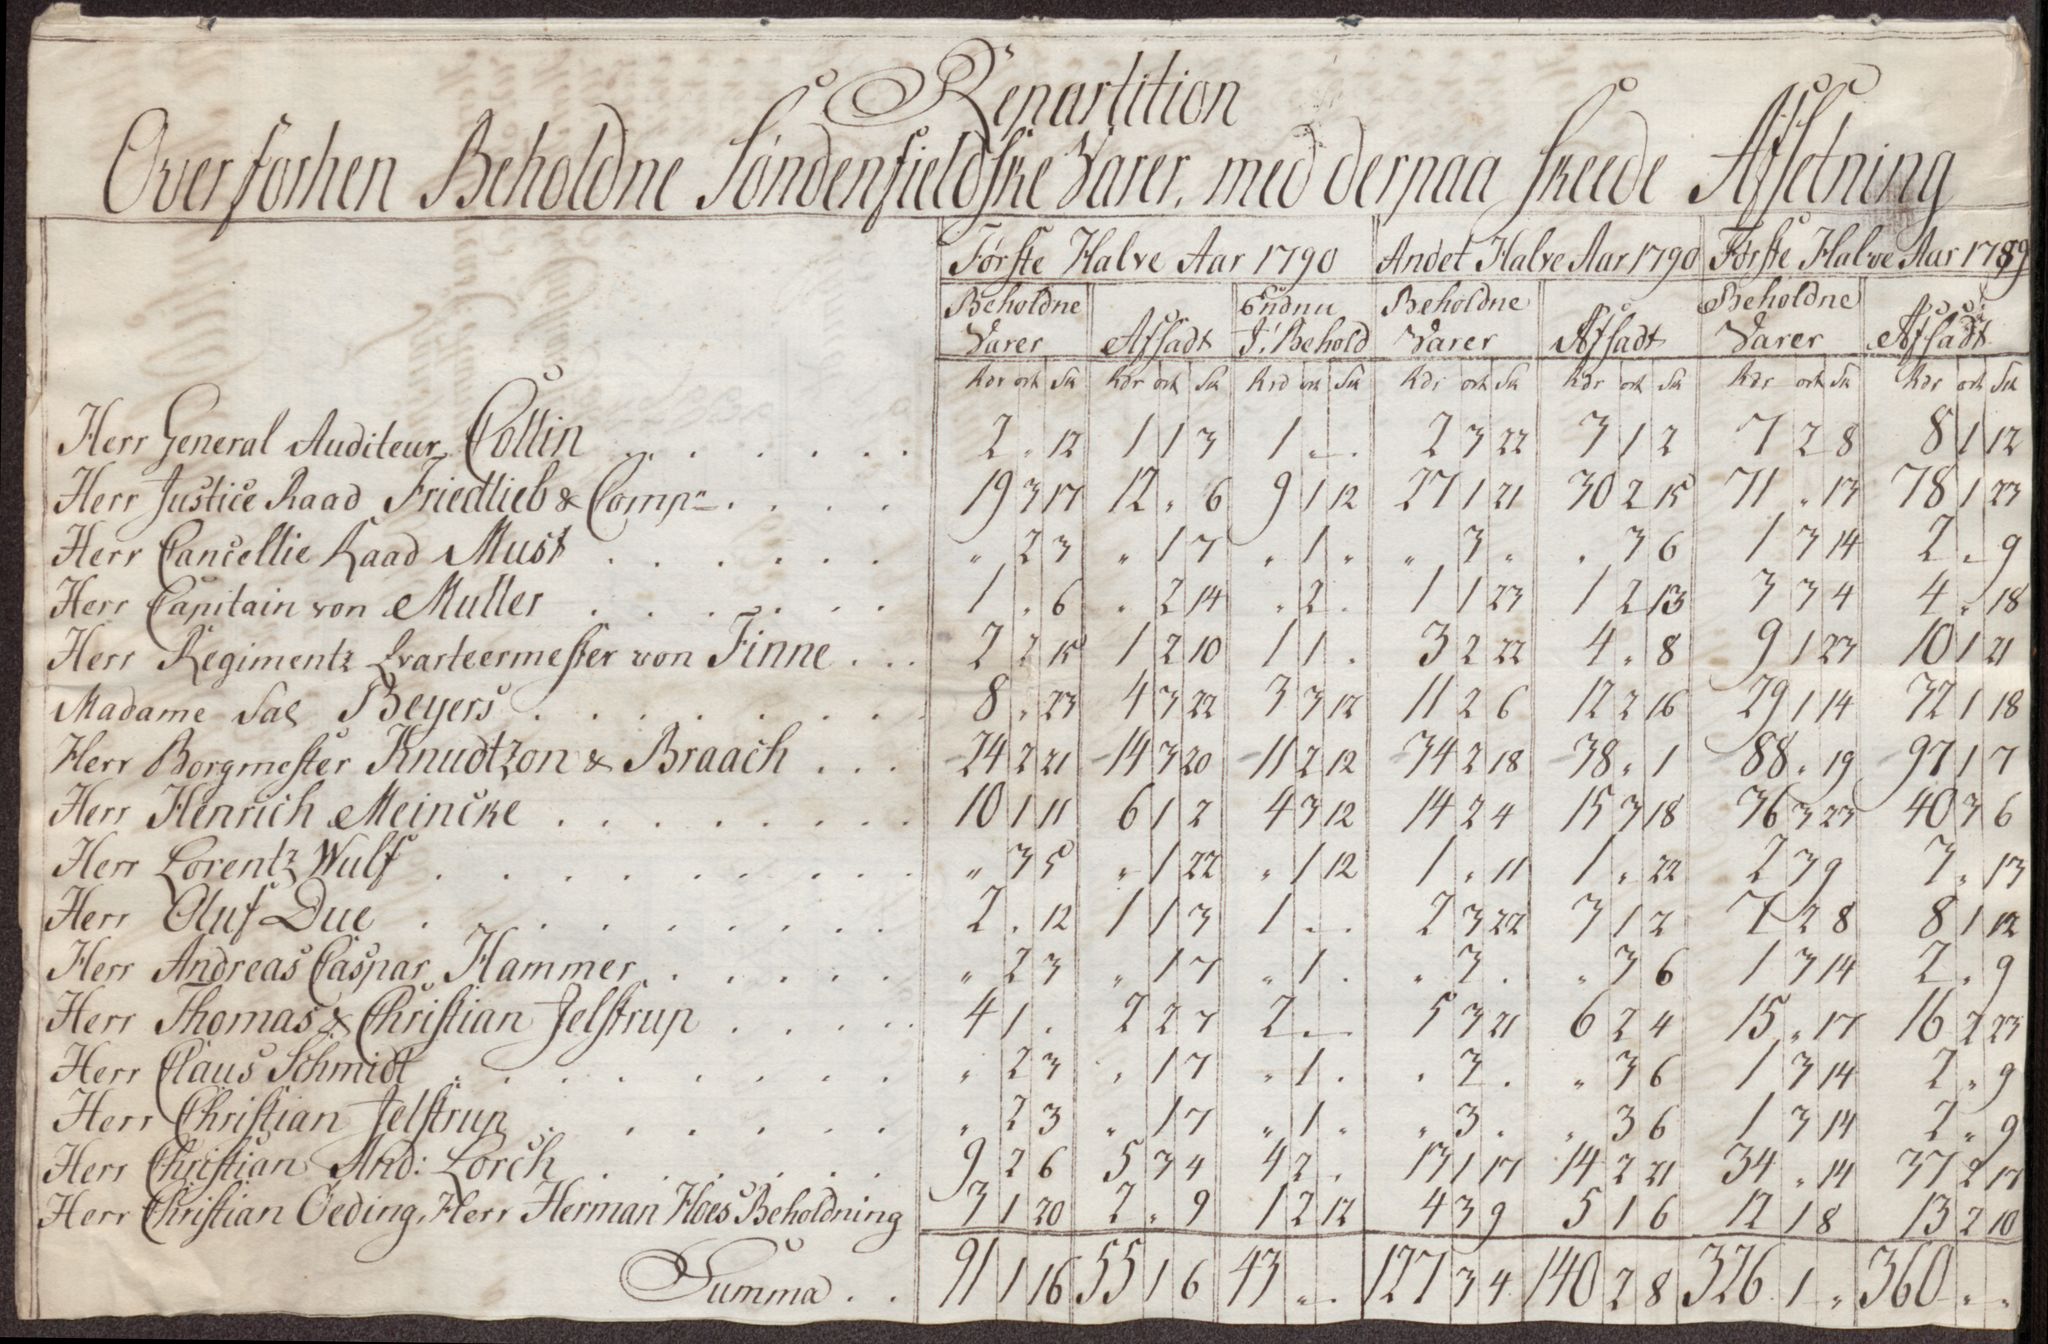 Repartition
Over forhen Beholdne Søndenfieldske Varer, med derpaa skeede Afsetning
Første Halve Aar 1790 Andet Halve Aar 1790 Første Halve Aar 1789
Beholdne Varer Afsadt Endnu I: Behold Beholdne Varer Afsadt Beholdne Varer Afsadt
Rdr ort Sk Rdr ort Sk Rrd ort Sk Rdr ort Sk Rdr ort Sk Rdr ort Sk Rdr ort Sk
Herr General Auditeur Collin . . . . . . 2 „ 12 1 1 3 1 „ „ 2 3 22 3 1 2 7 2 8 8 1 12
Herr Justice Raad Friedlieb & Comp. . . . . 19 3 17 12 „ 6 9 1 12 27 1 21 30 2 15 71 „ 13 78 1 23
Herr Cancellie Raad Must . . . . . . „ 2 3 „ 1 7 „ 1 „ „ 3 „ „ 3 6 1 3 14 2 „ 9
Herr Capitain von Muller . . . . . . 1 „ 6 „ 2 14 „ 2 „ 1 1 23 1 2 13 3 3 4 4 „ 18
Herr Regimentz Qvarteermester von Finne . . . 2 2 15 1 2 10 1 1 „ 3 2 22 4 „ 8 9 1 23 10 1 21
Madame Sal Beyers . . . . . . . 8 „ 23 4 3 22 3 3 12 11 2 6 12 2 16 29 1 14 32 1 18
Herr Borgmester Knudtzon & Braach . . . 24 2 21 14 3 20 11 2 12 34 2 18 38 „ 1 88 „ 19 97 1 7
Herr Henrich Meincke . . . . . . . 10 1 11 6 1 2 4 3 12 14 2 4 15 3 18 36 3 23 40 3 6
Herr Lorentz Wulf . . . . . . . . „ 3 5 „ 1 22 „ 1 12 1 „ 11 1 „ 22 2 3 9 3 „ 13
Herr Oluf Due . . . . . . . . 2 „ 12 1 1 3 1 „ „ 2 3 22 3 1 2 7 2 8 8 1 12
Herr Andreas Caspar Hammer . . . . . „ 2 3 „ 1 7 „ 1 „ „ 3 „ „ 3 6 1 3 14 2 „ 9
Herr Thomas & Christian Jelstrup . . . . 4 1 „ 2 2 7 2 „ „ 5 3 21 6 2 4 15 „ 17 16 2 23
Herr Claus Schmidt . . . . . . . . „ 2 3 „ 1 7 „ 1 „ „ 3 „ „ 3 6 1 3 14 2 „ 9
Herr Christian Jelstrup . . . . . . „ 2 3 „ 1 7 „ 1 „ „ 3 „ „ 3 6 1 3 14 2 „ 9
Herr Christian And: Lorch . . . . . . 9 2 6 5 3 4 4 2 „ 13 1 17 14 2 21 34 „ 14 37 2 17
Herr Christian Oeding, Herr Herman Hoes Beholdning 3 1 20 2 „ 9 1 2 12 4 3 9 5 1 6 12 1 8 13 2 10
Summa . . 91 1 16 55 1 6 43 „ „ 127 3 4 140 2 8 326 1 „ 360 „ „